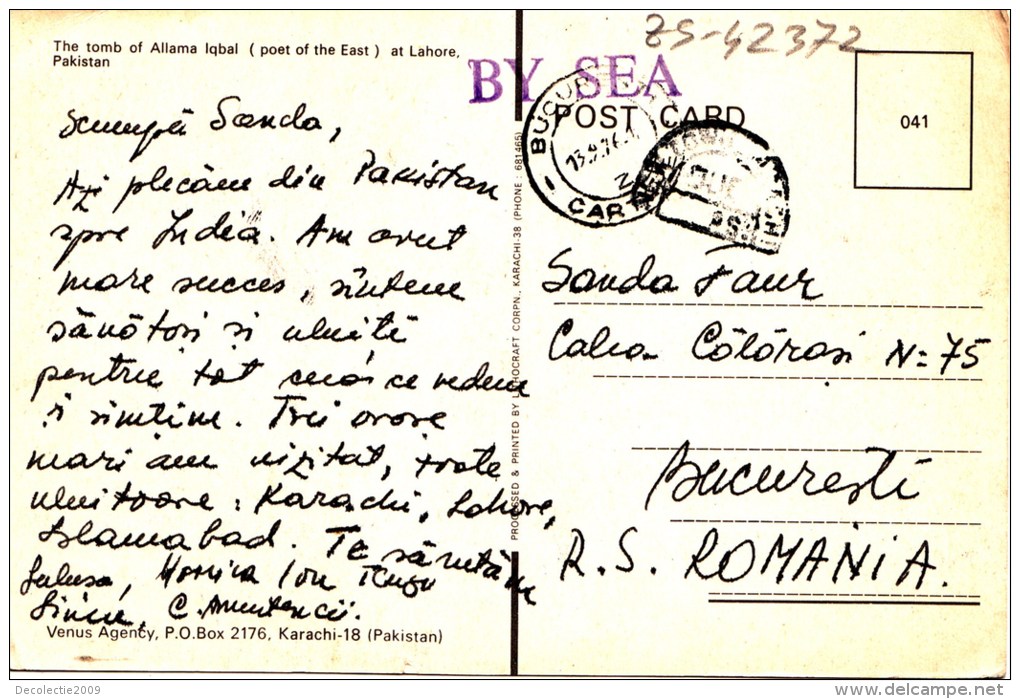 The tomb of Allama Iqbal ( poet of the East ) at Lahore,
Pakistan
Scumpă Sanda,
Azi plecăm din Pakistan
spre India. Am avut
mare succes, sîntem
sănătoși și uluiți
pentru tot ceia ce vedem
și simțim. Trei orașe
mari am vizitat, toate
uluitoare: Karachi, Lahore,
Islamabad. Te sărutăm
Monica Ion
Venus Agency, P.O.Box 2176, Karachi-18 (Pakistan)
PROCESSED & PRINTED BY LITHOCRAFT CORPN., KARACHI-38 (PHONE : 681465)
ZS-42372
BY SEA
POST CARD
041
Sanda Faur
Calea Călărași N=75
București
R.S. ROMANIA.
Decolectie2009
delcampe.net